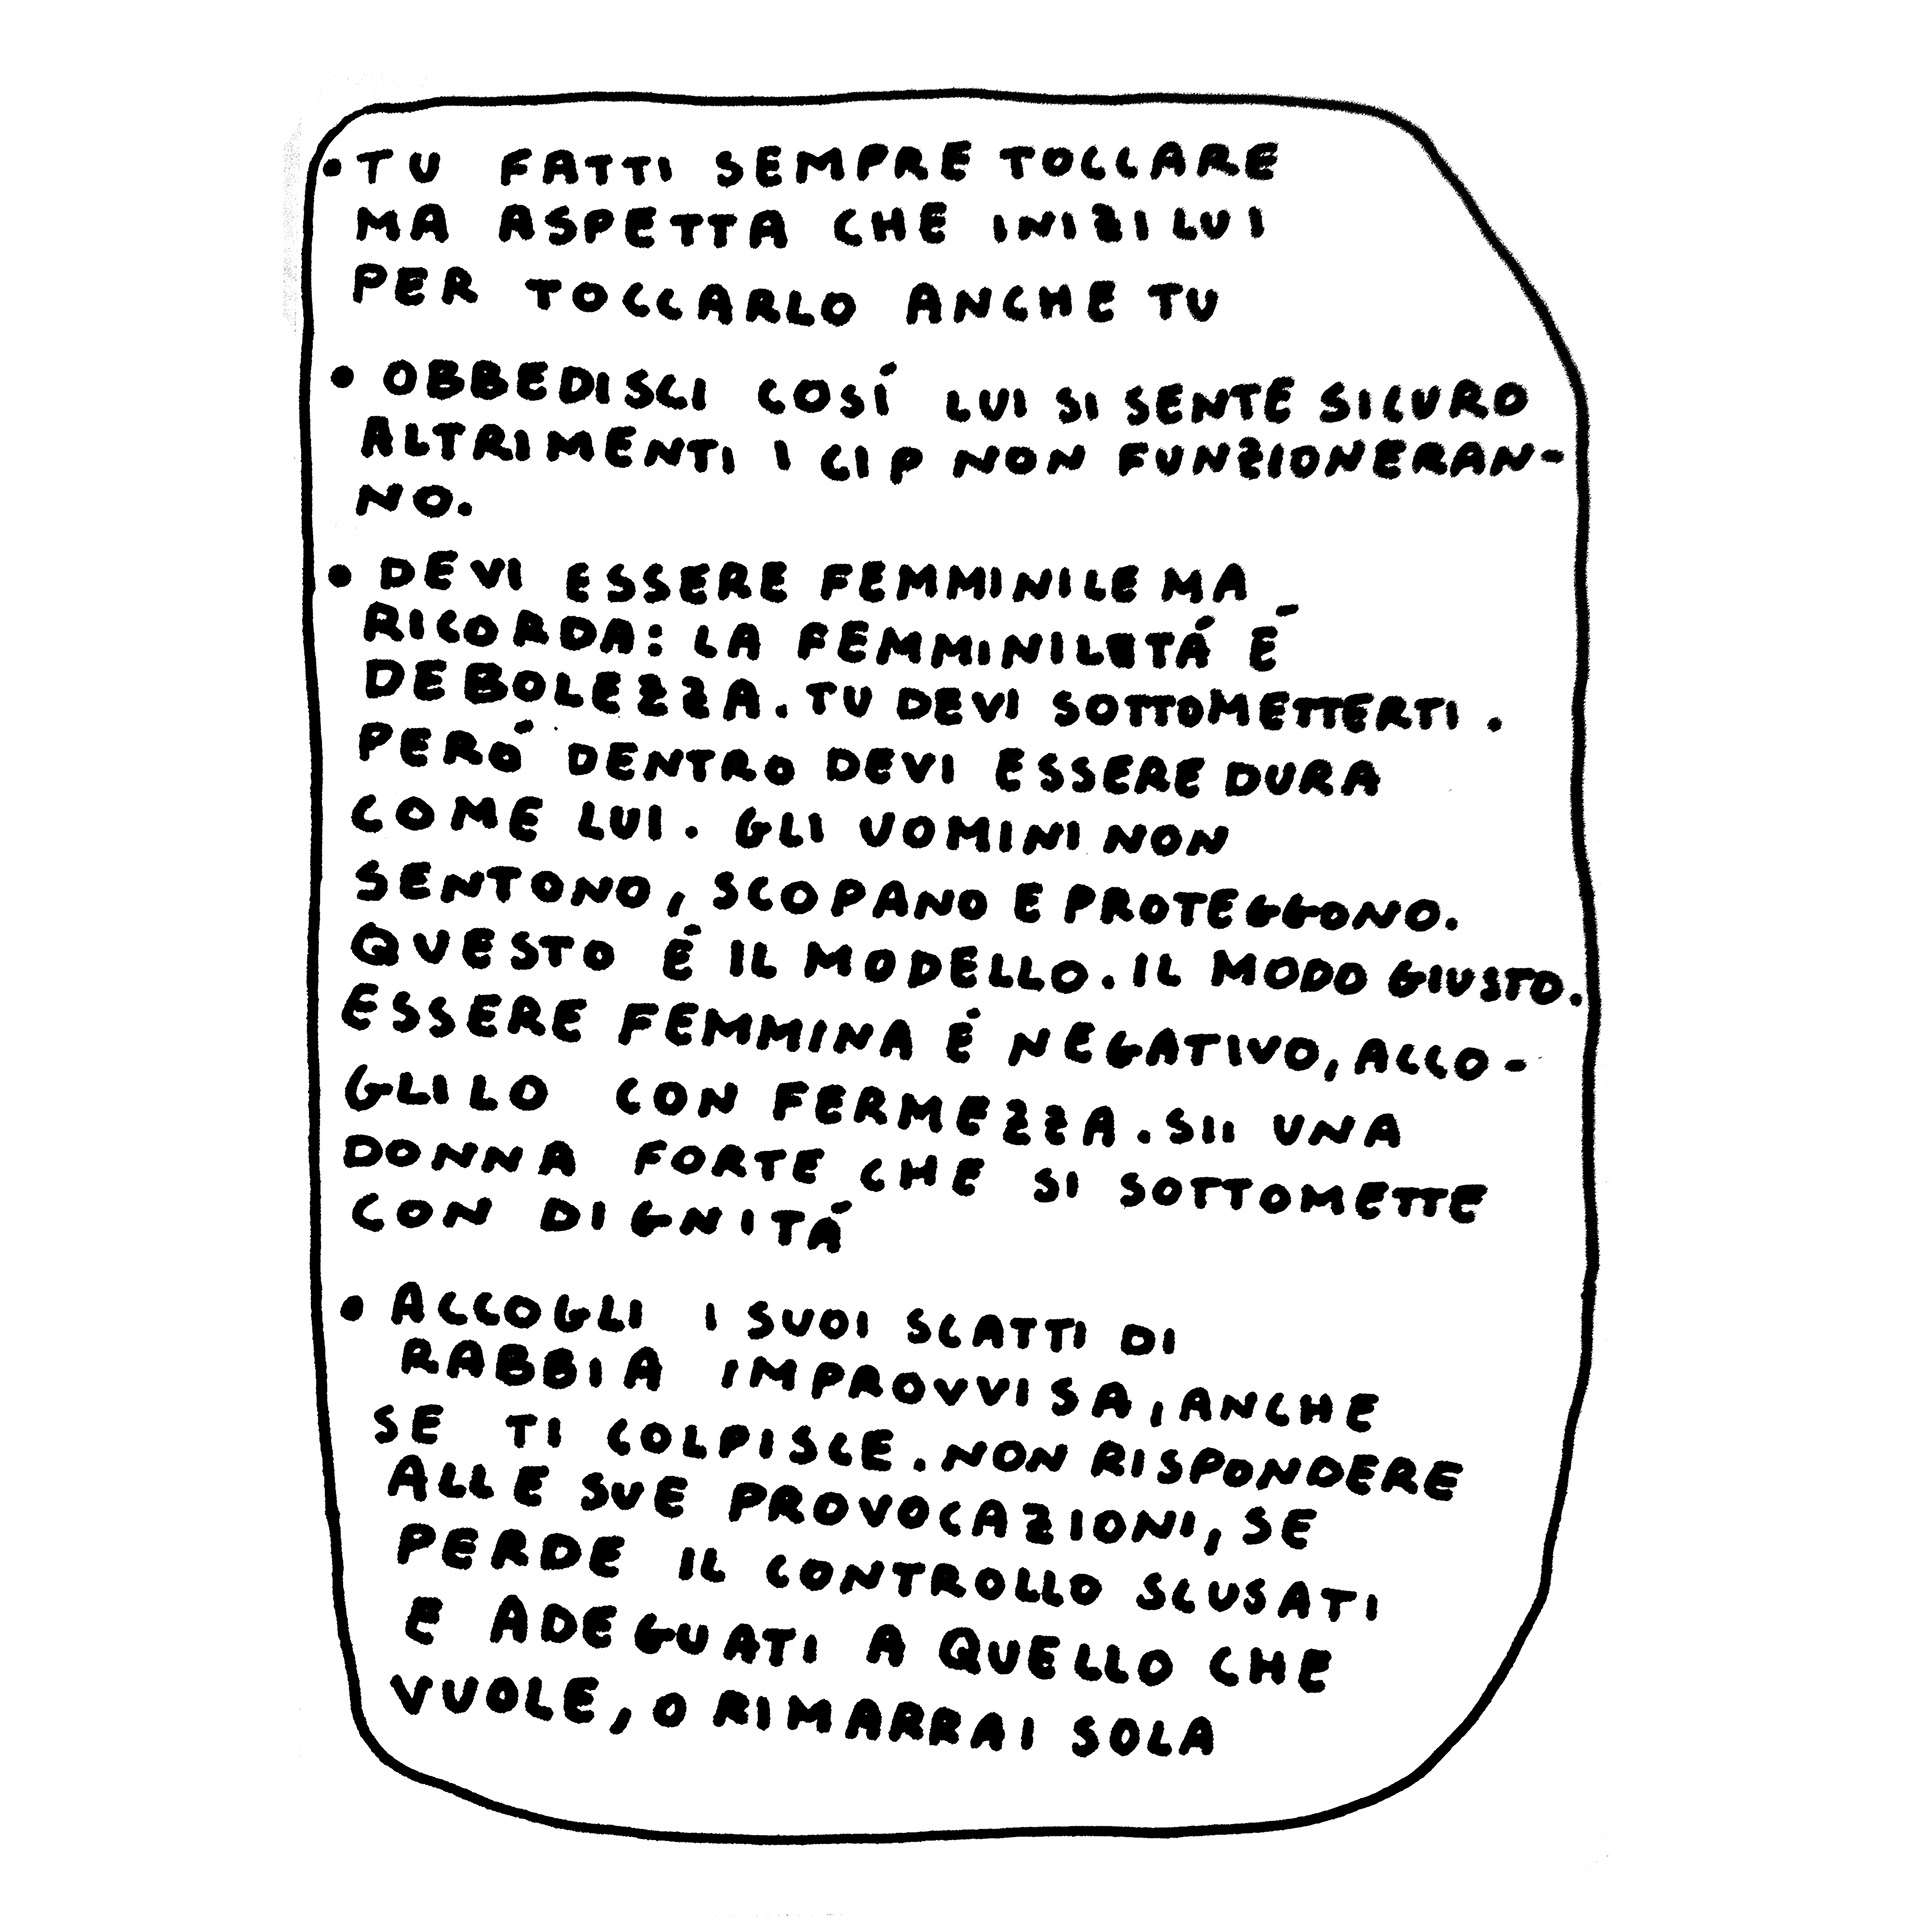 • TU FATTI SEMPRE TOCCARE
MA ASPETTA CHE INIZI LUI
PER TOCCARLO ANCHE TU
• OBBEDISCI COSÍ LUI SI SENTE SICURO
ALTRIMENTI I CIP NON FUNZIONERAN-
NO.
• DEVI ESSERE FEMMINILE MA
RICORDA: LA FEMMINILITÁ É
DEBOLEZZA. TU DEVI SOTTOMETTERTI.
PERÓ DENTRO DEVI ESSERE DURA
COME LUI. GLI UOMINI NON
SENTONO, SCOPANO E PROTEGGONO.
QUESTO É IL MODELLO. IL MODO GIUSTO.
ESSERE FEMMINA É NEGATIVO, ACCO-
GLILO CON FERMEZZA. SII UNA
DONNA FORTE CHE SI SOTTOMETTE
CON DIGNITÁ
• ACCOGLI I SUOI SCATTI DI
RABBIA IMPROVVISA, ANCHE
SE TI COLPISCE. NON RISPONDERE
ALLE SUE PROVOCAZIONI, SE
PERDE IL CONTROLLO SCUSATI
E ADEGUATI A QUELLO CHE
VUOLE, O RIMARRAI SOLA